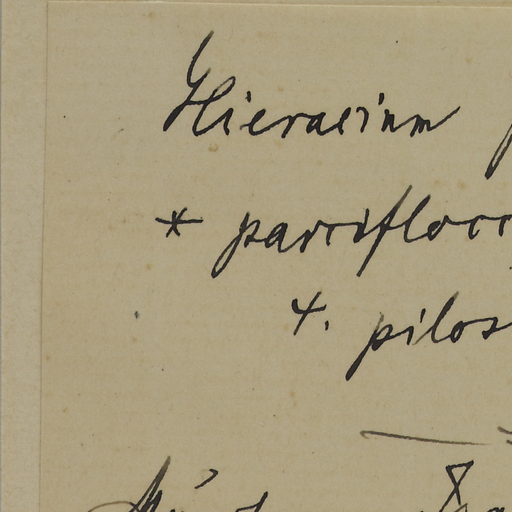 Hieracium
* parcifloc
4. pilos